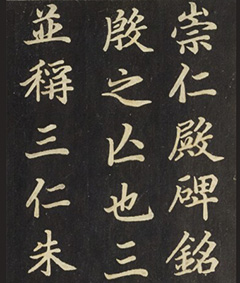 崇仁殿碑銘
殷之亡也三
並稱三仁朱